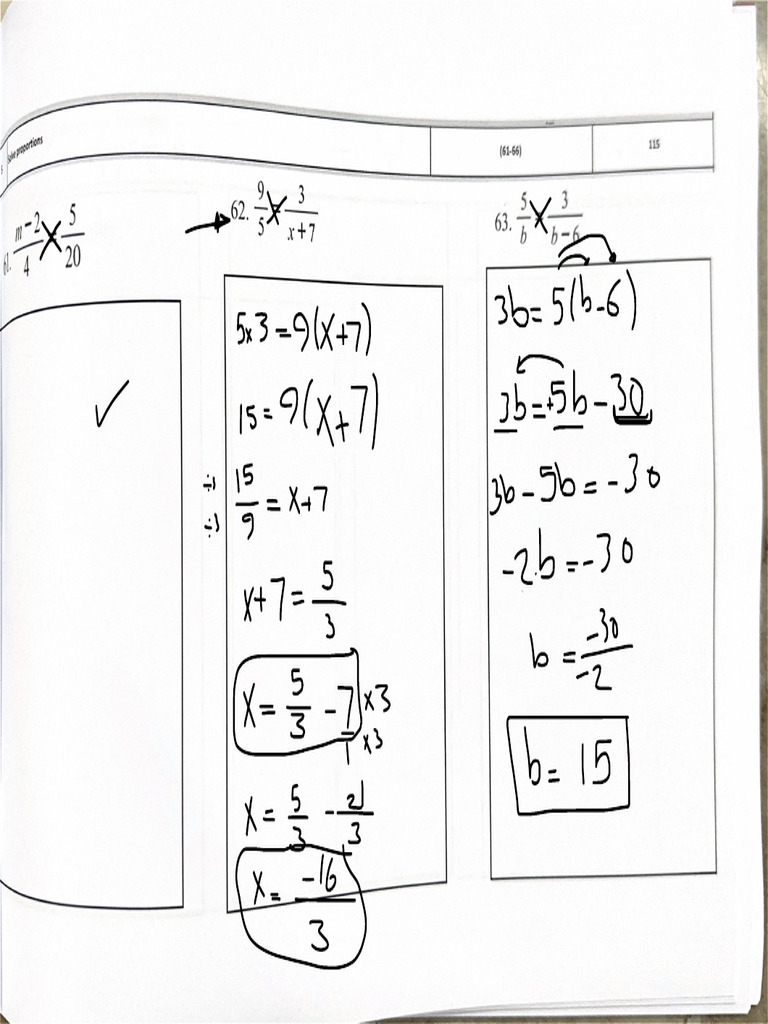 Solve proportions
(61-66)
115
61. m-2/4 = 5/20
62. 9/5 = 3/x+7
5x3 = 9(x+7)
15 = 9(x+7)
÷3 15/9 = x+7
÷3
x+7 = 5/3
x = 5/3 - 7/1 x3
x3
x = 5/3 - 21/3
x = -16/3
63. 5/b = 3/b-6
3b = 5(b-6)
3b = +5b - 30
3b - 5b = -30
-2b = -30
b = -30/-2
b = 15